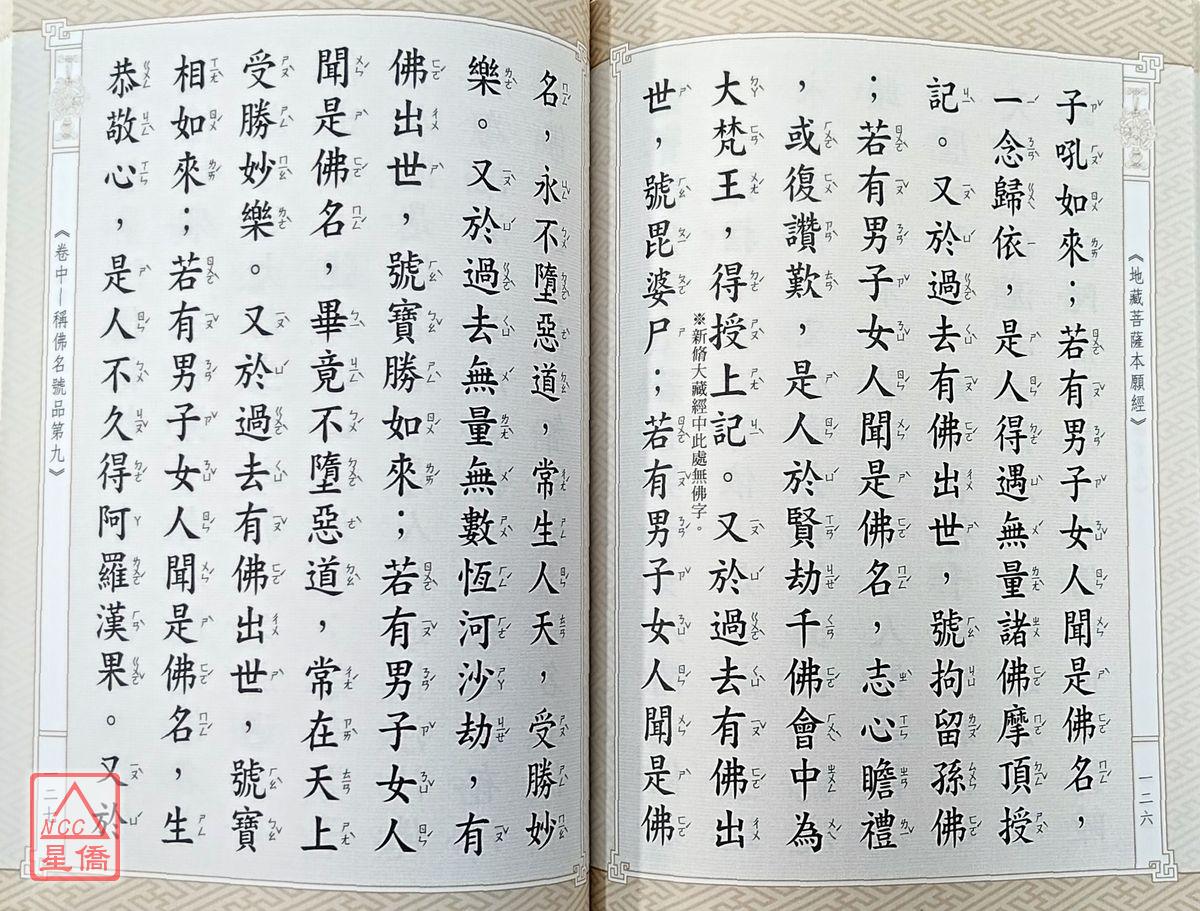 《地藏菩薩本願經》
一二六
子吼如來；若有男子女人聞是佛名，
一念歸依，是人得遇無量諸佛摩頂授
記。又於過去有佛出世，號拘留孫佛
；若有男子女人聞是佛名，志心瞻禮
，或復讚歎，是人於賢劫千佛會中為
大梵王，得授上記。又於過去有佛出
※新脩大藏經中此處無佛字。
世，號毘婆尸；若有男子女人聞是佛
名，永不墮惡道，常生人天，受勝妙
樂。又於過去無量無數恆河沙劫，有
佛出世，號寶勝如來；若有男子女人
聞是佛名，畢竟不墮惡道，常在天上
受勝妙樂。又於過去有佛出世，號寶
相如來；若有男子女人聞是佛名，生
恭敬心，是人不久得阿羅漢果。又於
《卷中－稱佛名號品第九》
NCC
星僑